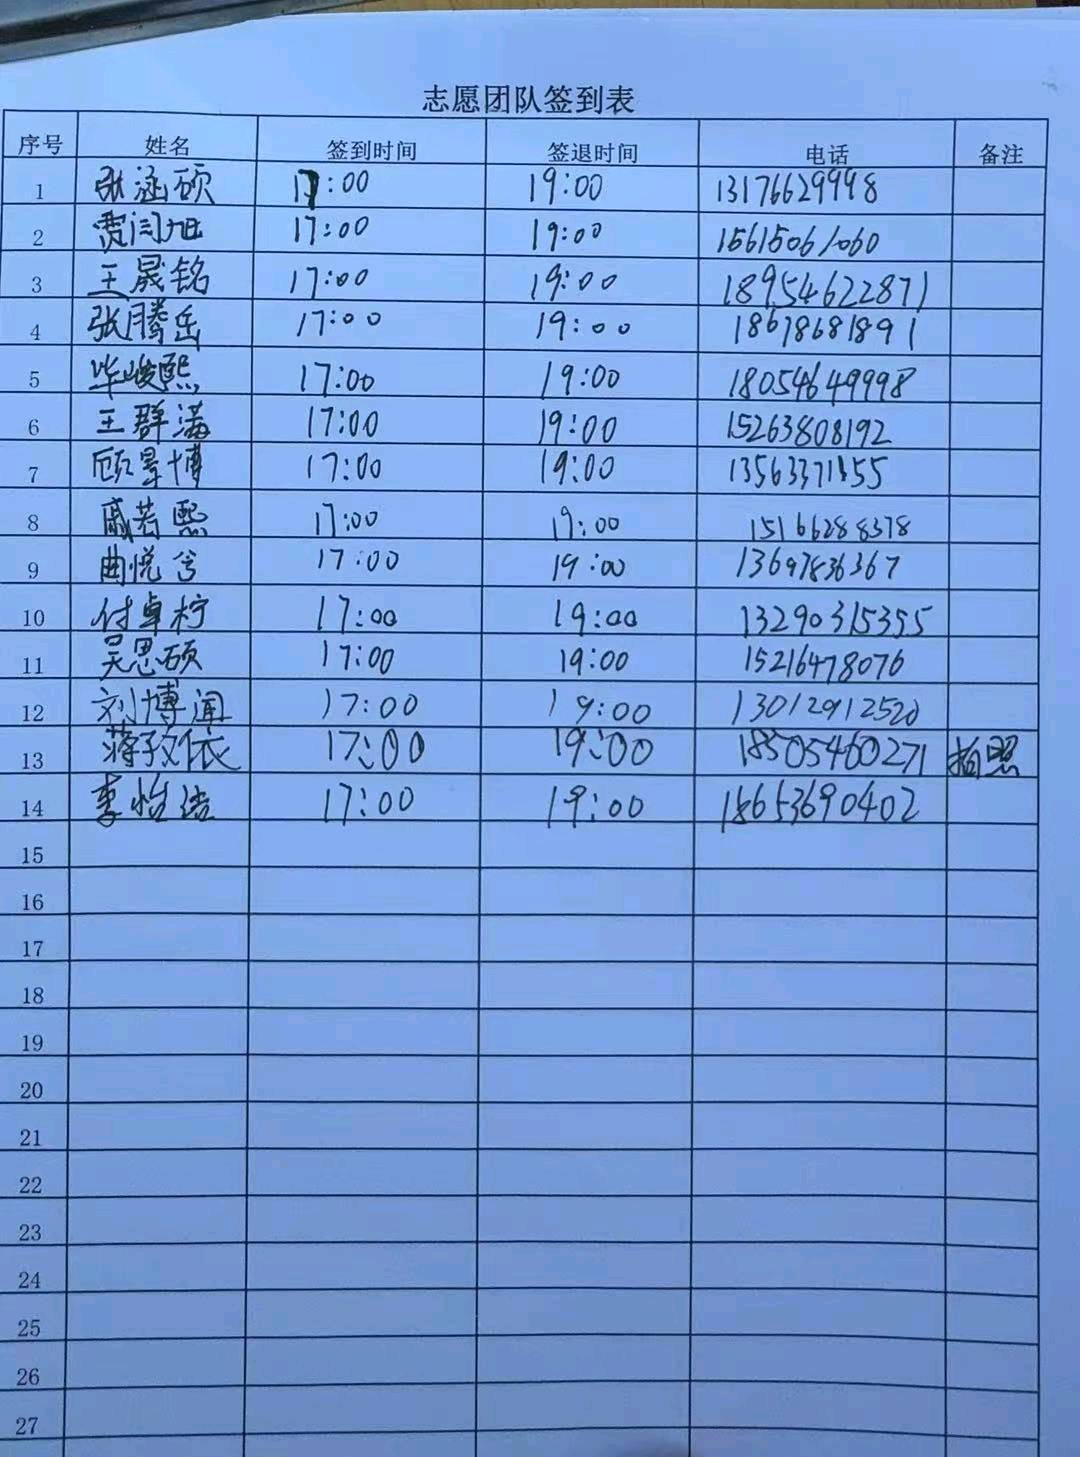 志愿团队签到表
序号 姓名 签到时间 签退时间 电话 备注
1 张涵硕 17:00 19:00 13176629998
2 贾闫旭 17:00 19:00 15615061060
3 王晟铭 17:00 19:00 18954622871
4 张腾岳 17:00 19:00 18678681891
5 毕峻熙 17:00 19:00 18054649998
6 王群满 17:00 19:00 15263808192
7 顾景博 17:00 19:00
8 戚若熙 17:00 19:00 15166288378
9 曲悦兮 17:00 19:00 13697836367
10 付卓柠 17:00 19:00 13290315355
11 吴思硕 17:00 19:00 15216478076
12 刘博闻 17:00 19:00 13012912520
13 蒋孜依 17:00 19:00 18505460271 拍照
14 李怡 17:00 19:00 18653690402
15
16
17
18
19
20
21
22
23
24
25
26
27